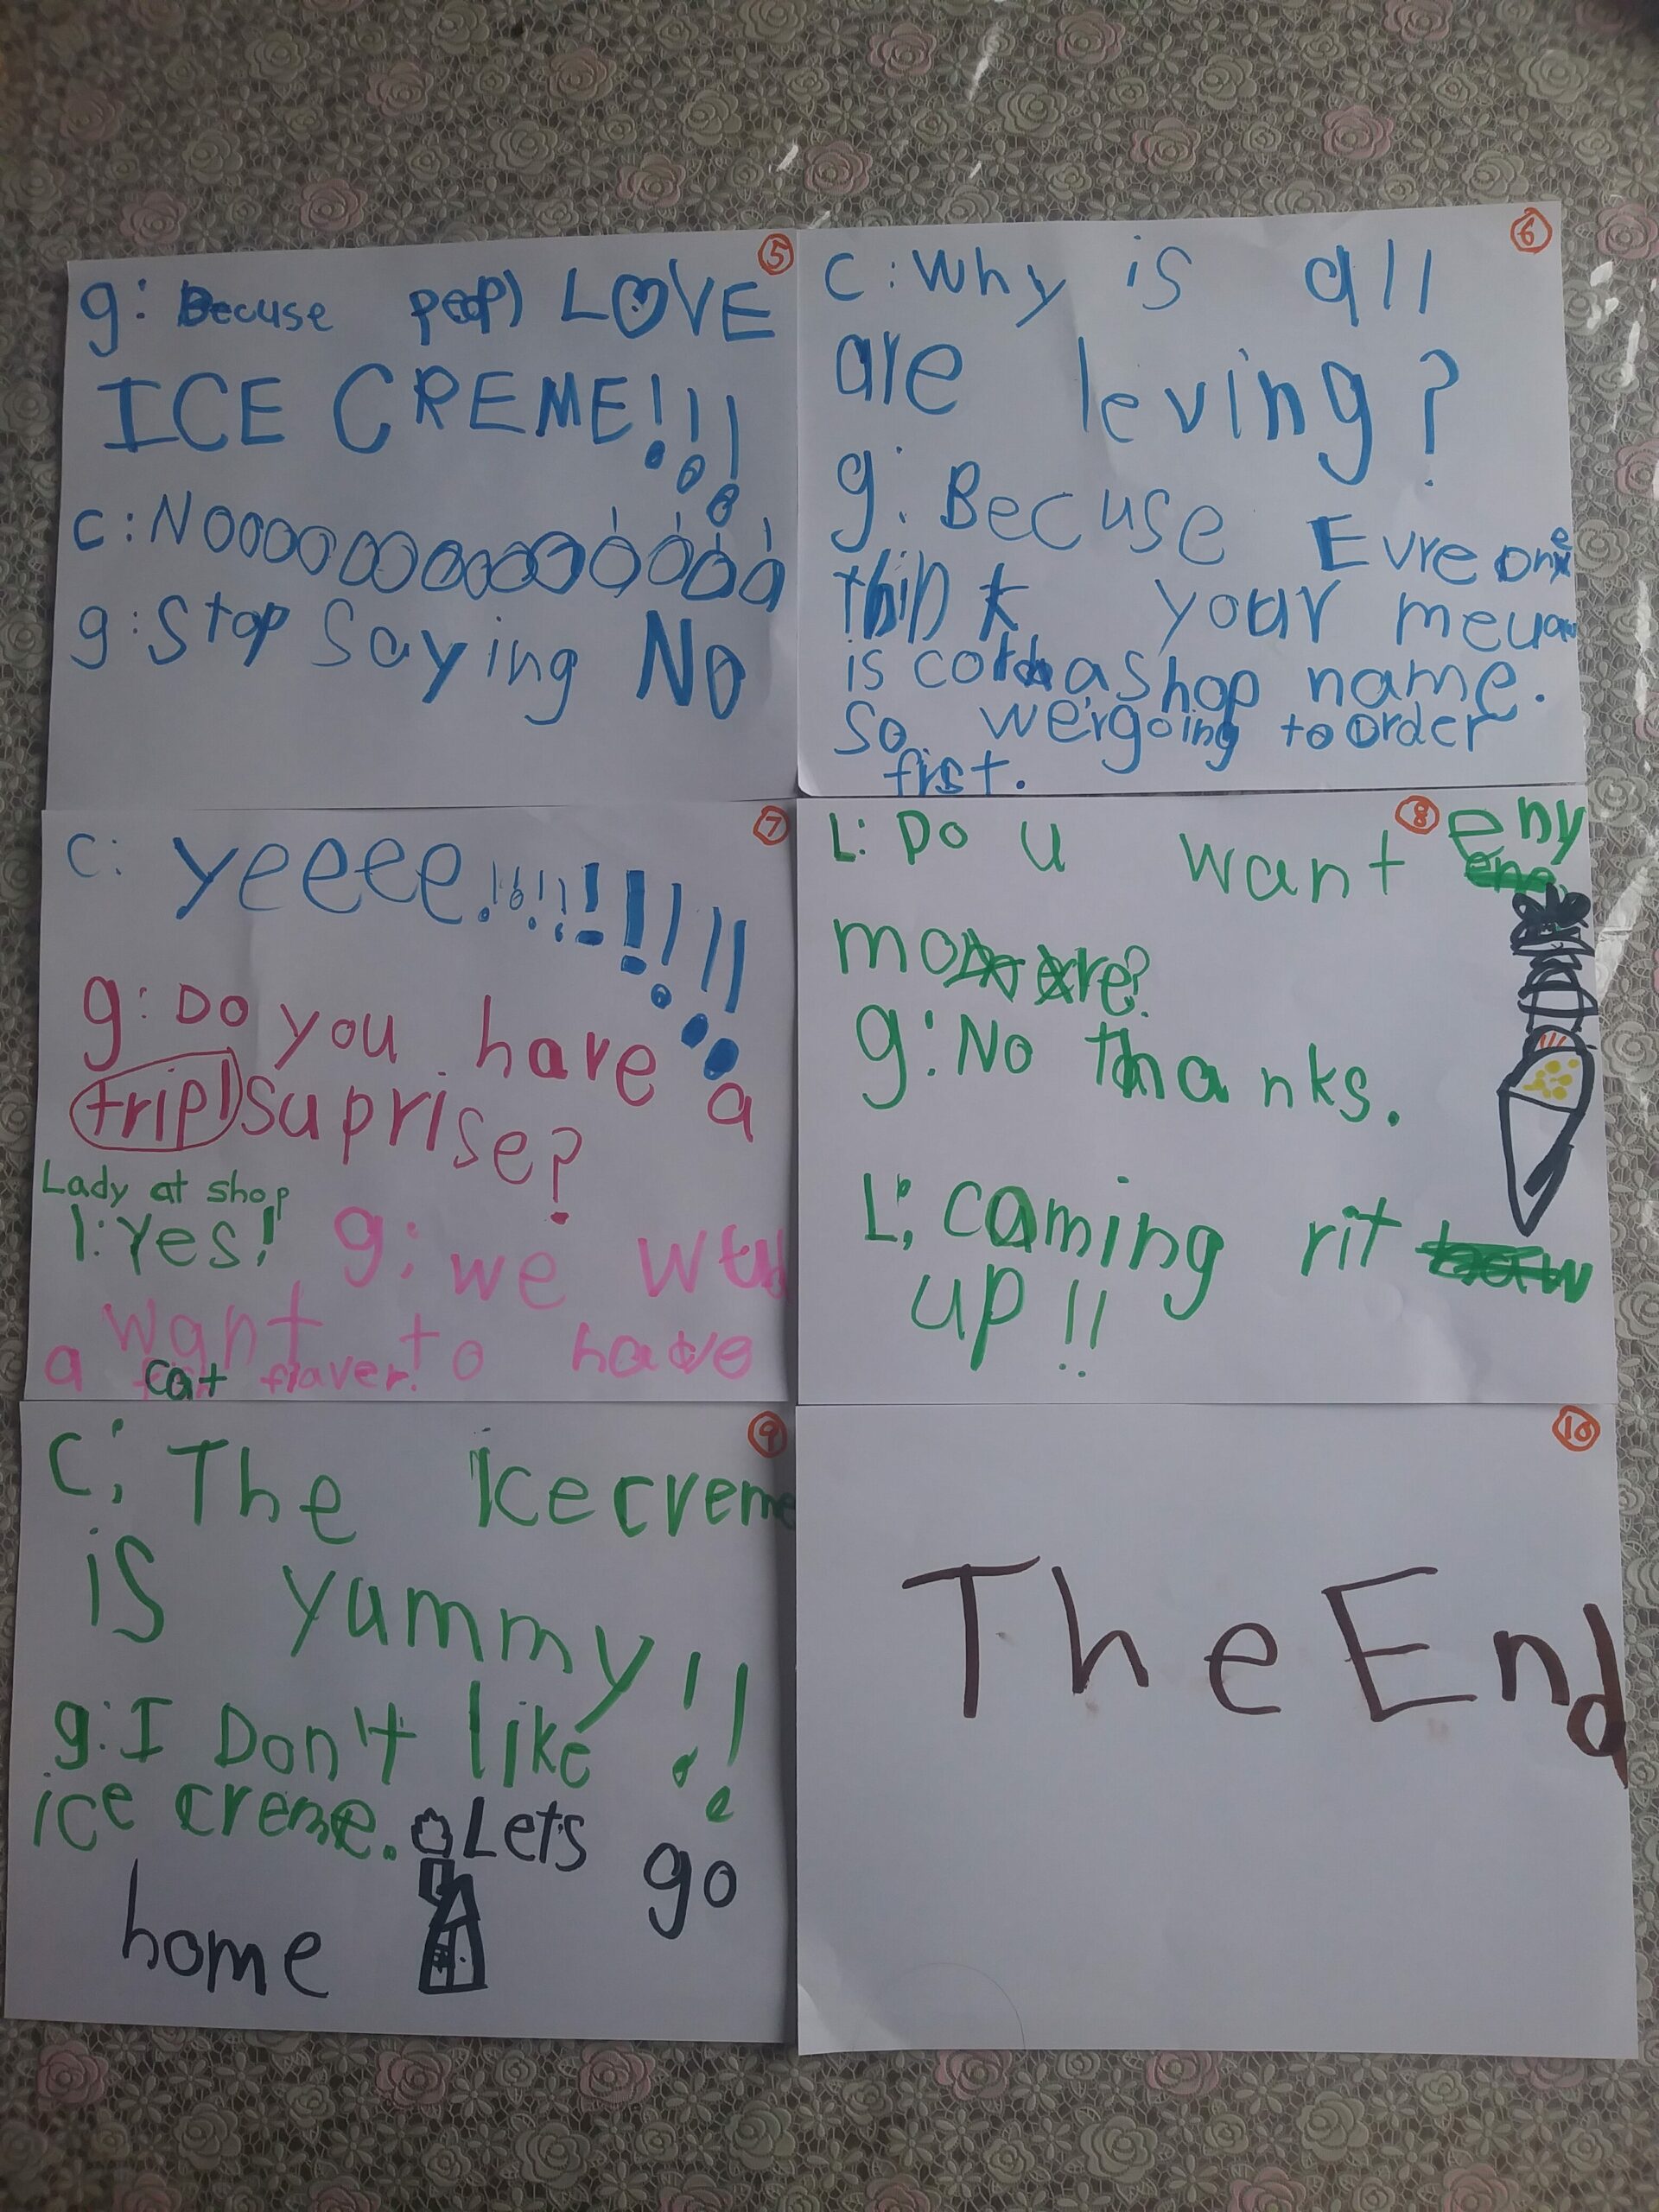 5
g: Becuse peopl LOVE
ICE CREME!!!
c: NOooooooooooooooo!!!!
g: Stop Saying NO
6
C: Why is all
are leving?
g: Becuse Evre one
think your meuan
is a shop name.
So we'r going to order
frst.
7
C: yeeee!!!!!!!!!!
g: Do you have a
tripl suprise?
Lady at shop
l: Yes! g: we wud
want to have
a cat flaver.
8
L: Do u want eny
more?
g: No thanks.
L: Coming rit
up!!
9
C: The Icecreme
is yummy!!
g: I Don't like
ice creme. Let's go
home
10
The End